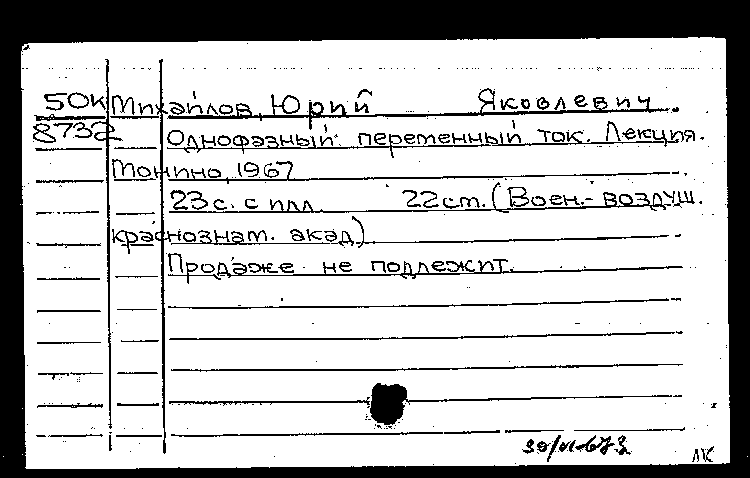 50К Михайлов, Юрий Яковлевич.
8732 Однофазный переменный ток. Лекция.
Монино, 1967
23 с. с илл. 22 см. (Воен.- воздуш.
краснознам. акад)
Продаже не подлежит.
ЛК